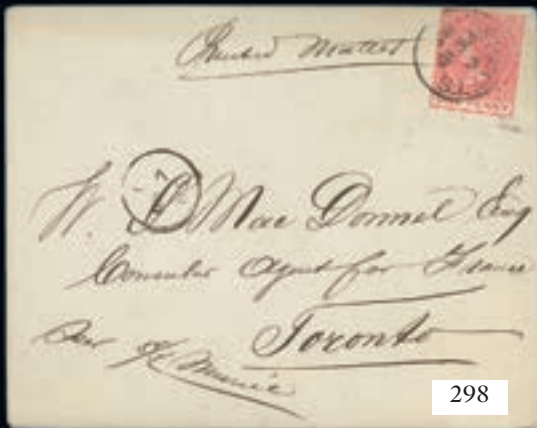 Printed Matter
W. Mac Donnel Esq
Consular Agent for France
Toronto
298